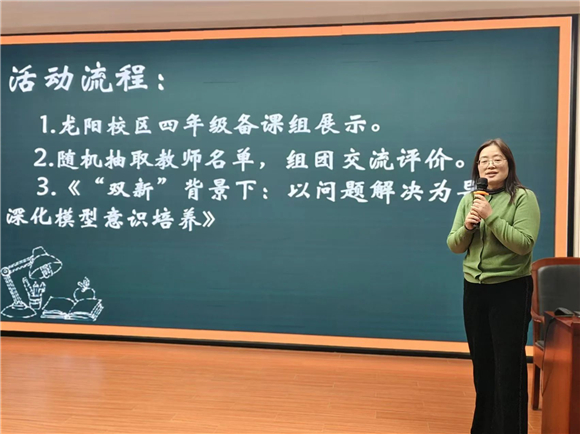 活动流程：
1.龙阳校区四年级备课组展示。
2.随机抽取教师名单，组团交流评价。
3.《“双新”背景下：以问题解决为
深化模型意识培养》